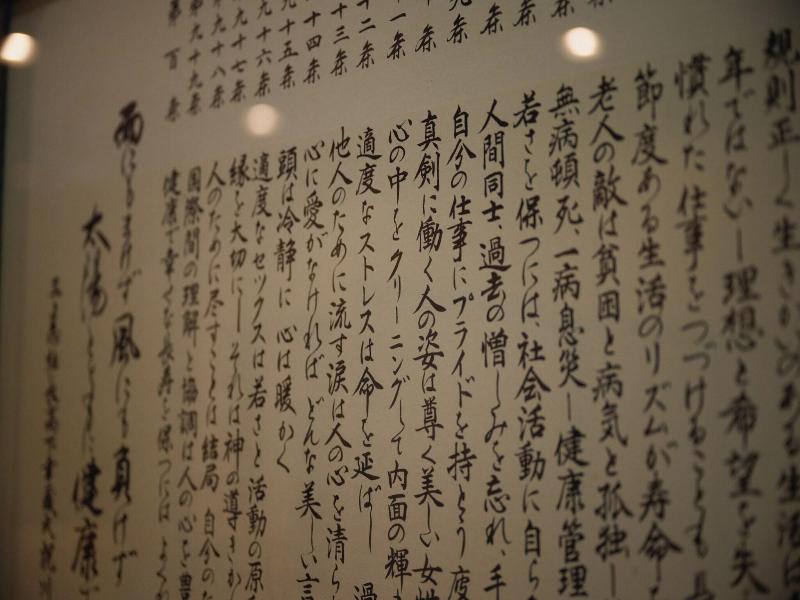 規則正しく生きがいのある生活は
年ではない―理想と希望を失
慣れた仕事をつづけることも長
節度ある生活のリズムが寿命
老人の敵は貧困と病気と孤独―
無病頓死、一病息災―健康管理
若さを保つには、社会活動に自ら
人間同士、過去の憎しみを忘れ、手
条 自分の仕事にプライドを持とう 度
条 真剣に働く人の姿は尊く美しい 女性
一条 心の中をクリーニングして内面の輝き
十二条 適度なストレスは命を延ばし― 過
十三条 他人のために流す涙は人の心を清ら
十四条 心に愛がなければ どんな美しい言
九十五条 頭は冷静に 心は暖かく
九十六条 適度なセックスは若さと活動の原
九十七条 縁を大切に―それは神の導きか
九十八条 人のために尽すことは結局 自分のた
第九十九条 国際間の理解と協調は人の心を豊
第百条 健康で幸せな長寿を保つには よく
雨にもまけず 風にも負けず
太陽とともに 健康